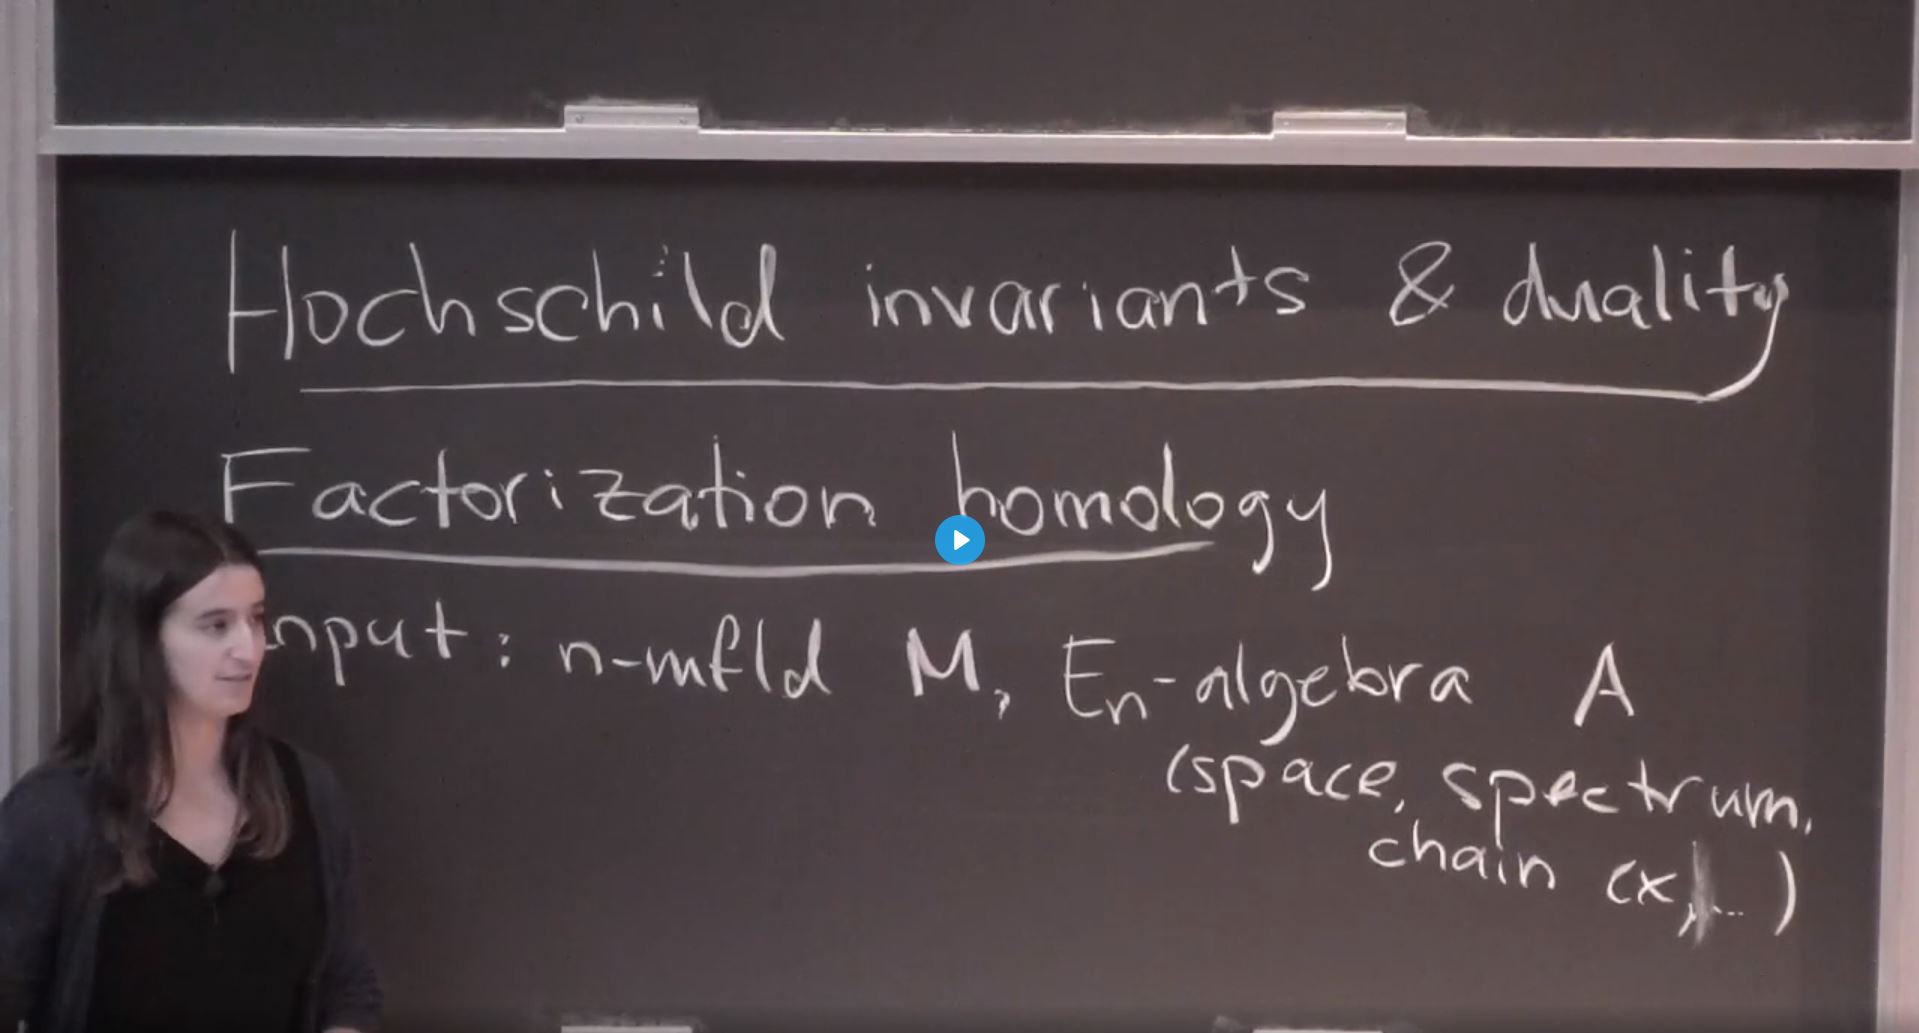 Hochschild invariants & duality
Factorization homology
Input: n-mfld M, En-algebra A
(space, spectrum,
chain cx, ...)